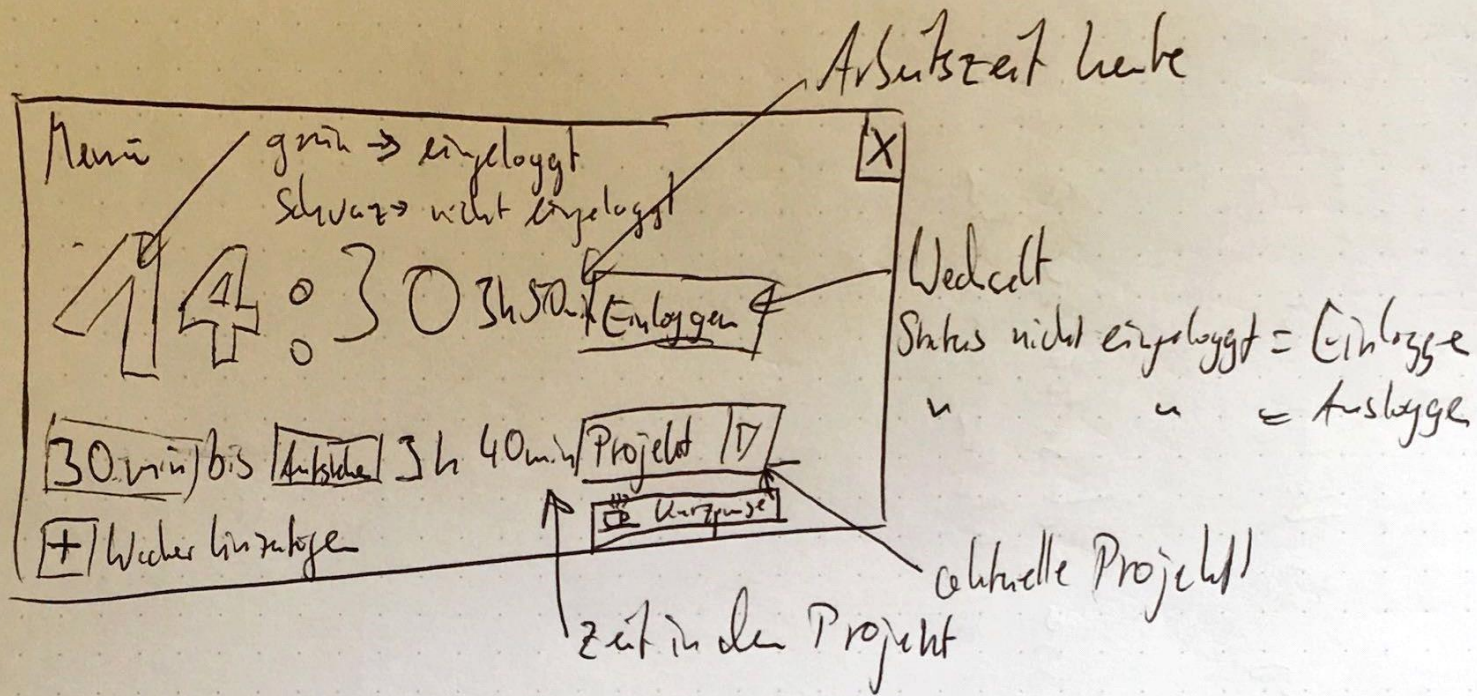 Arbeitszeit heute
Menü
grün → eingeloggt
X
Schwarz → nicht eingeloggt
14:30 3h 50min Einloggen
Wechselt
Status nicht eingeloggt = Einlogge
" " = Ausloggen
30min bis Aufstehen 3h 40min Projekt
Kurzpause
+ Wecker hinzufügen
aktuelle Projekt
Zeit in dem Projekt